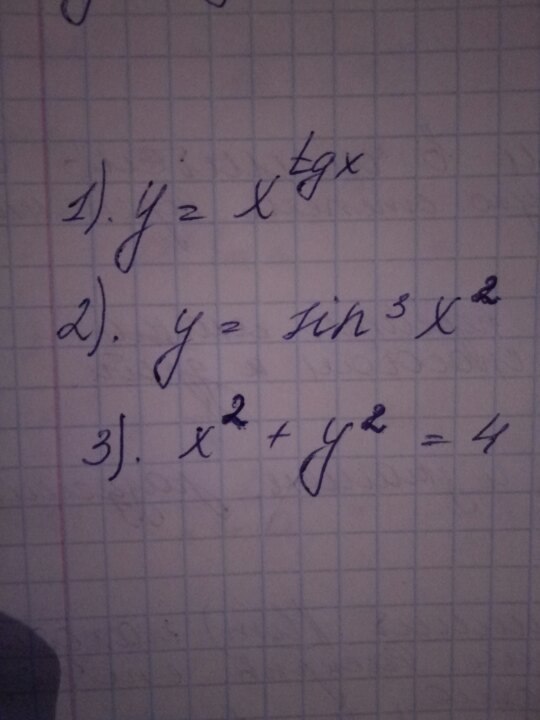 1). y = x^tgx
2). y = sin³x²
3). x² + y² = 4